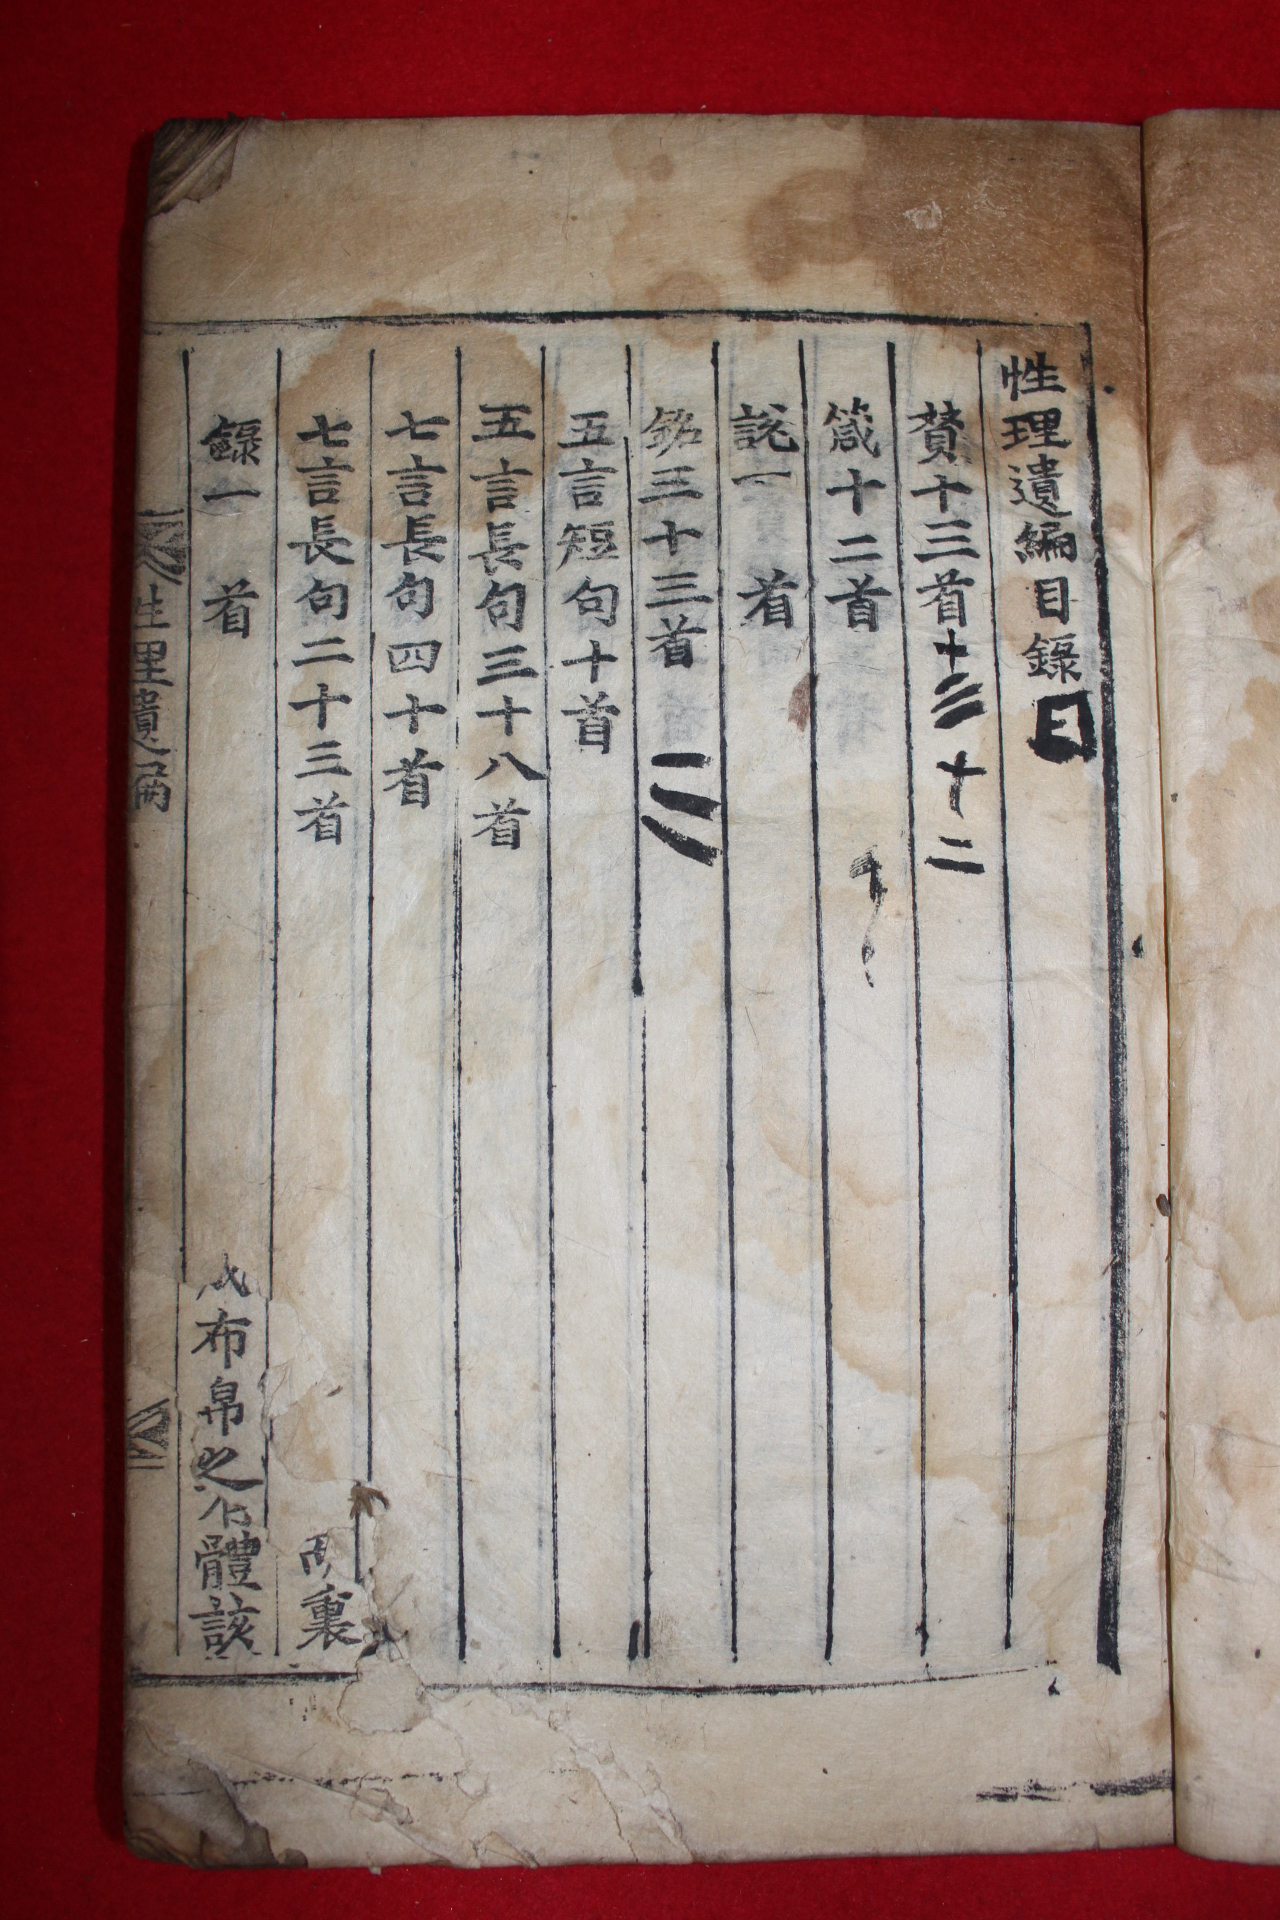 性理遺編目錄
賛十三首十三十二
箴十二首
說一首
銘三十三首
五言短句十首
五言長句三十八首
七言長句四十首
七言長句二十三首
裏
錄一首
布帛之
體該
性理遺編